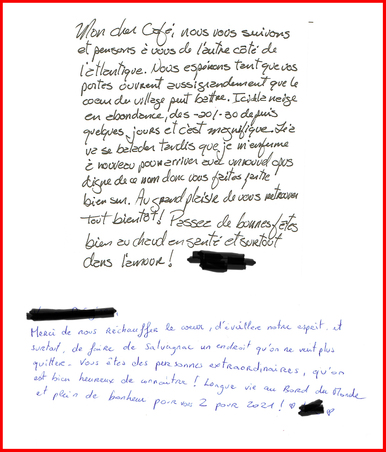 Mon cher Café, nous vous suivons
et pensons à vous de l'autre côté de
l'atlantique. Nous espérons tant que vos
portes ouvrent aussi grandement que le
coeur du village peut battre. Ici il neige
en abondance, des -20/-30 depuis
quelques jours et c'est magnifique.
va se balader tandis que je m'enferme
à nouveau pour arriver avec un nouvel opus
digne de ce nom dont vous faites partie
bien sur. Au grand plaisir de vous retrouver
tout bientôt! Passez de bonnes fêtes
bien au chaud en santé et surtout
dans l'amour!
Merci de nous réchauffer le coeur, d'éveiller notre esprit et
surtout, de faire de Salvagnac un endroit qu'on ne veut plus
quitter. Vous êtes des personnes extraordinaires, qu'on
est bien heureux de connaitre! Longue vie au Bord du Monde
et plein de bonheur pour vos 2 pour 2021!